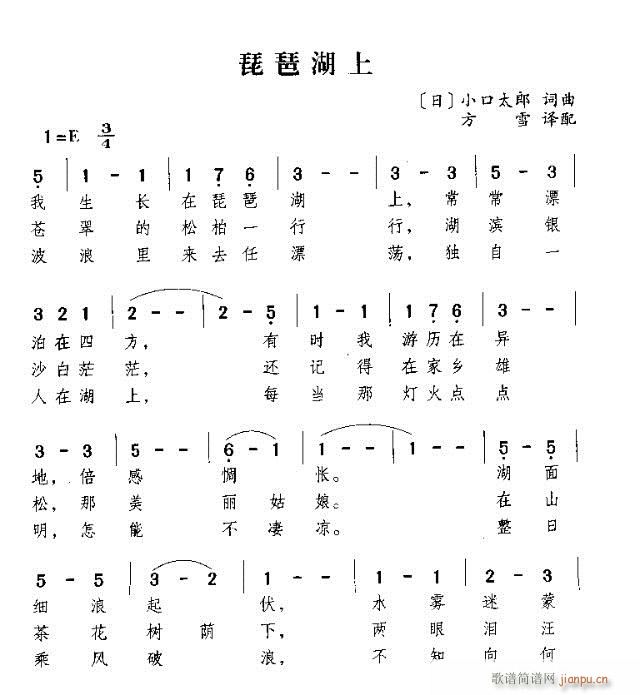 琵琶湖上
〔日〕小口太郎 词曲
方 雪 译配
1=E 3/4
5 | 1 - 1 | 1 7 6 | 3 - - | 3 - 3 | 5 - 3 |
我 生 长 在 琵 琶 湖 上， 常 常 漂
苍 翠 的 松 柏 一 行 行， 湖 滨 银
波 浪 里 来 去 任 漂 荡， 独 自 一
3 2 1 | 2 - - | 2 - 5 | 1 - 1 | 1 7 6 | 3 - - |
泊 在 四 方， 有 时 我 游 历 在 异
沙 白 茫 茫， 还 记 得 在 家 乡 雄
人 在 湖 上， 每 当 那 灯 火 点 点
3 - 3 | 5 - - | 6 - 1 | 1 - - | 1 - - | 5 - 5 |
地， 倍 感 惆 怅。 湖 面
松， 那 美 丽 姑 娘。 在 山
明， 怎 能 不 凄 凉。 整 日
5 - 5 | 3 - 2 | 1 - - | 1 - 1 | 2 - 3 |
细 浪 起 伏， 水 雾 迷 蒙
茶 花 树 荫 下， 两 眼 泪 汪
乘 风 破 浪， 不 知 向 何
歌谱简谱网
jianpu.cn